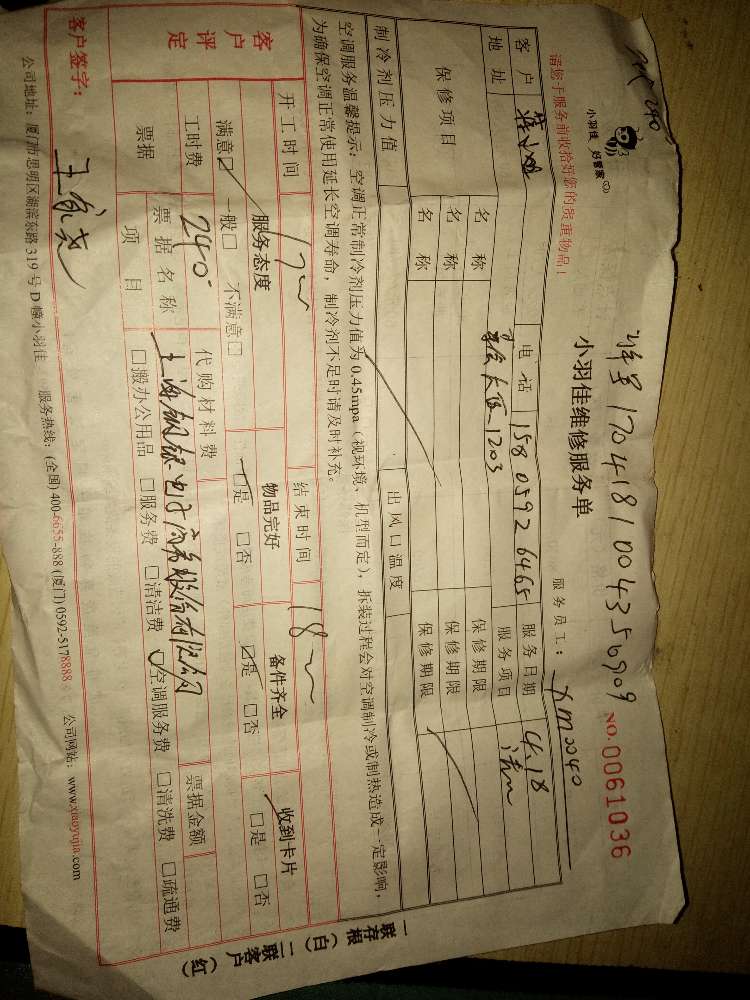 小羽佳 好管家
单号1704181004356909
请您于服务前收拾好您的贵重物品!
小羽佳维修服务单
NO.0061036
服务员工: xm0040
客户 电话 15805926465 服务日期 4.18
地址 1203 服务项目
保修项目 名称 保修期限
名称 保修期限
名称 保修期限
制冷剂压力值 出风口温度
空调服务温馨提示:空调正常制冷剂压力值为0.45mpa(视环境、机型而定),拆装过程会对空调制冷或制热造成一定影响,
为确保空调正常使用延长空调寿命,制冷剂不足时请及时补充。
开工时间 17 结束时间 18
客户评定 服务态度 物品完好 备件齐全 收到卡片
满意□ 一般□ 不满意□ □是 □否 □是 □否 □是 □否
工时费 240 代购材料费 票据金额
票据 票据名称 上海钢银电子商务股份有限公司
项目 □搬办公用品 □服务费 □清洁费 □空调服务费 □清洗费 □疏通费
客户签字:
公司地址:厦门市思明区湖滨东路319号D幢小羽佳 服务热线:(全国)400-6655-888 (厦门)0592-5178888 公司网站:www.xiaoyujia.com
一联存根(白) 二联客户(红)